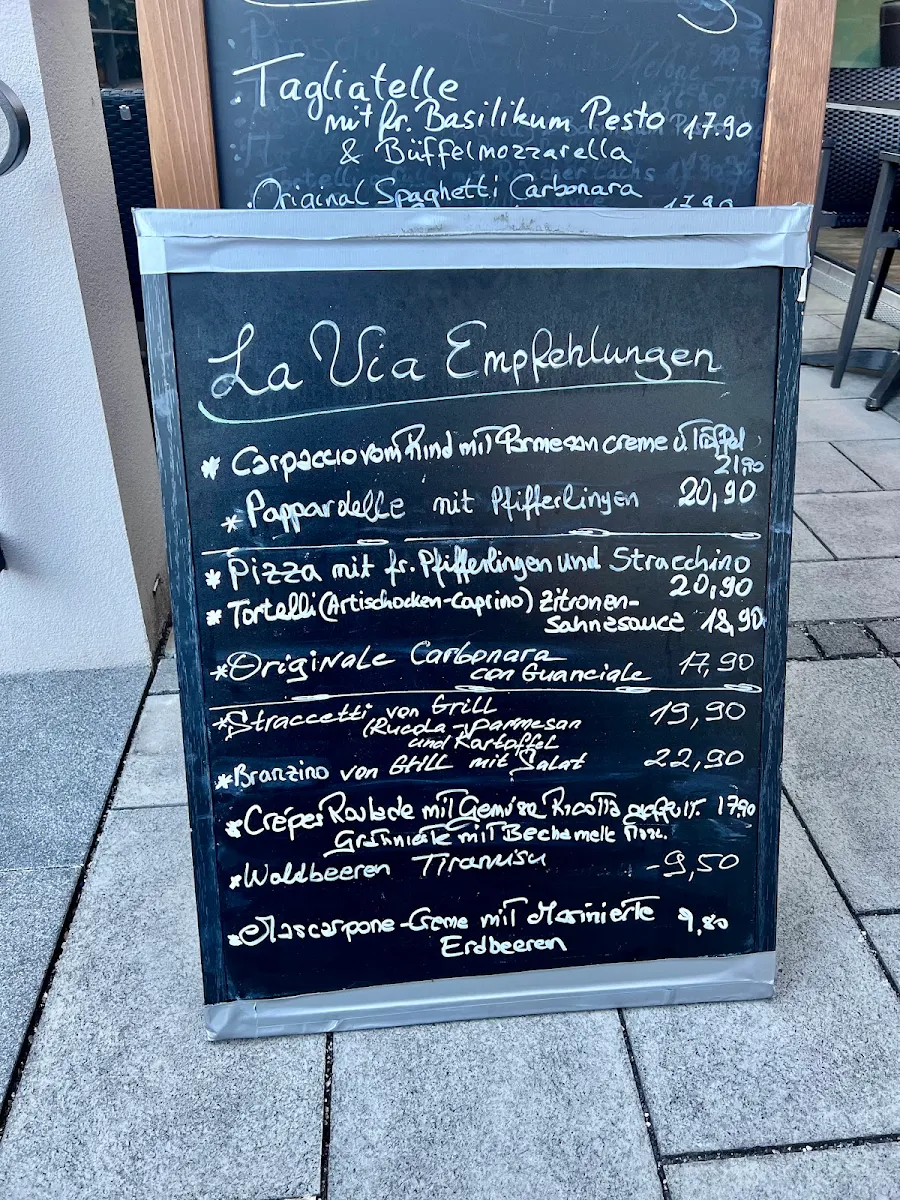 Tagliatelle
mit fr. Basilikum Pesto 17.90
& Büffelmozzarella
Original Spaghetti Carbonara
17.90
La Via Empfehlungen
* Carpaccio vom Rind mit Parmesan creme u. Trüffel
21,90
* Pappardelle mit Pfifferlingen 20,90
* Pizza mit fr. Pfifferlingen und Stracchino
20,90
* Tortelli (Artischocken-Caprino) Zitronen-
Sahnesauce 18,90
* Originale Carbonara
con Guanciale 17,90
* Straccetti von Grill 19,90
(Rucola - Parmesan
und Kartoffel
* Branzino von Grill mit Salat 22,90
* Crêpes Roulade mit Gemüse Ricotta gefüllt. 17,90
mit Bechamelle
* Waldbeeren Tiramisu -9,50
* Mascarpone-Creme mit Marinierte 9,80
Erdbeeren